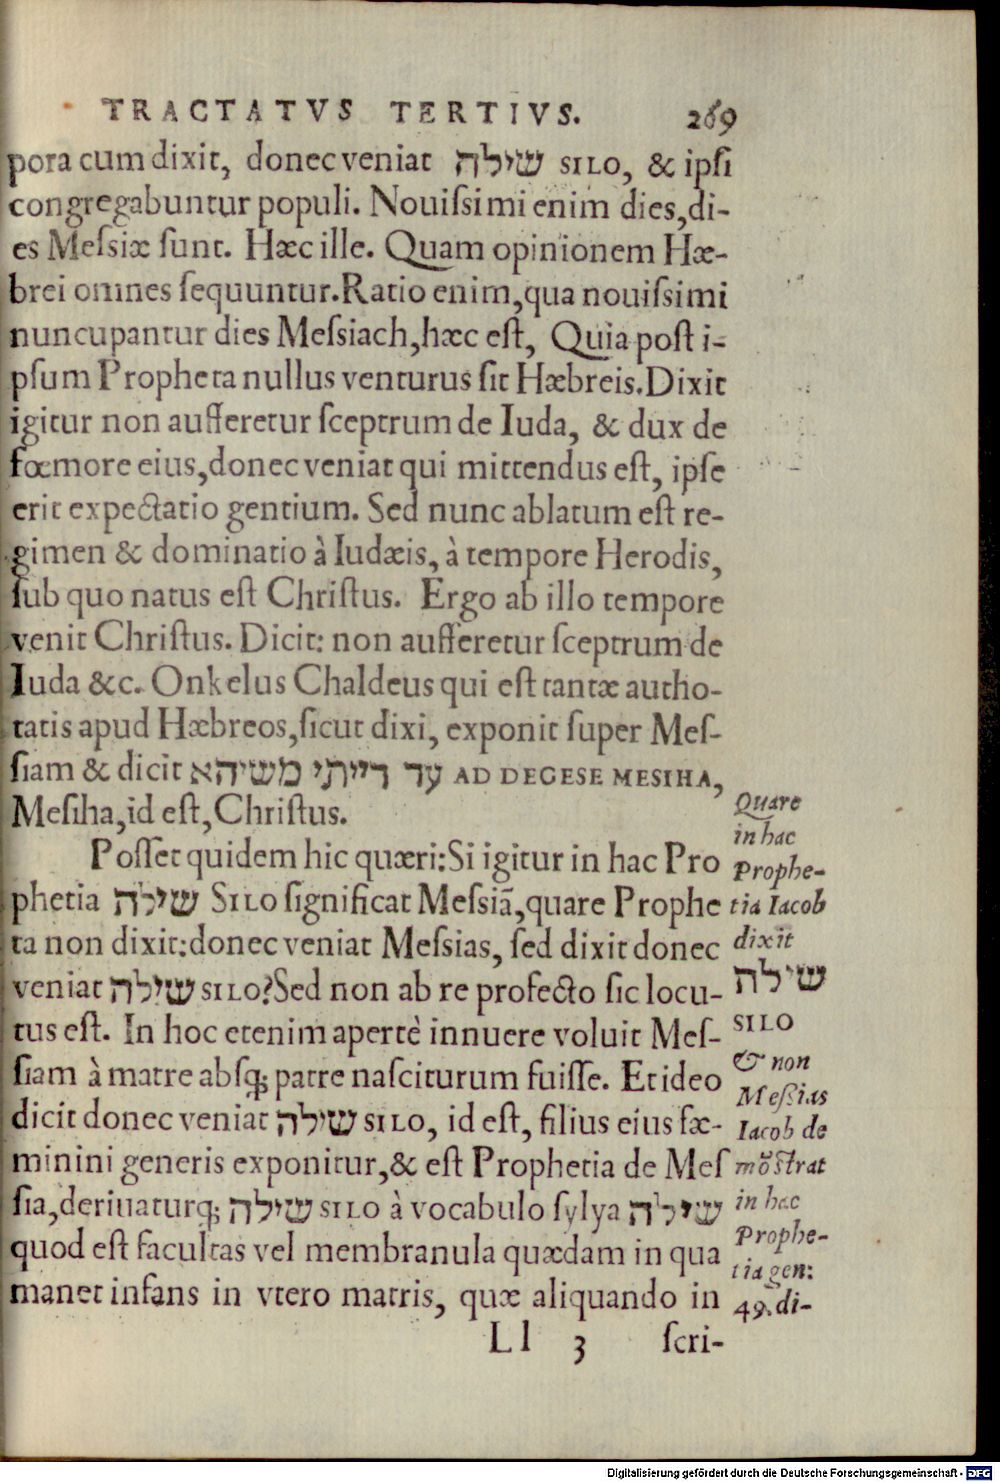 TRACTATVS TERTIVS. 269
pora cum dixit, donec veniat שילה SILO, & ipsi
congregabuntur populi. Nouiſsimi enim dies, di-
es Meſsiæ ſunt. Hæc ille. Quam opinionem Hæ-
brei omnes ſequuntur. Ratio enim, qua nouiſsimi
nuncupantur dies Meſsiach, hæc eſt, Quia poſt i-
pſum Propheta nullus venturus ſit Hæbreis. Dixit
igitur non aufferetur ſceptrum de Iuda, & dux de
fœmore eius, donec veniat qui mittendus eſt, ipſe
erit expectatio gentium. Sed nunc ablatum eſt re-
gimen & dominatio à Iudæis, à tempore Herodis,
ſub quo natus eſt Chriſtus. Ergo ab illo tempore
venit Chriſtus. Dicit: non aufferetur ſceptrum de
Iuda &c. Onkelus Chaldeus qui eſt tantæ autho-
tatis apud Hæbreos, ſicut dixi, exponit ſuper Meſ-
ſiam & dicit עד דייתי משיהא AD DEGESE MESIHA,
Meſiha, id eſt, Chriſtus.
Poſſet quidem hic quæri: Si igitur in hac Pro
phetia שילה SILO ſignificat Meſsiã, quare Prophe
ta non dixit: donec veniat Meſsias, ſed dixit donec
veniat שילה SILO? Sed non ab re profecto ſic locu-
tus eſt. In hoc etenim apertè innuere voluit Meſ-
ſiam à matre abſq; patre naſciturum fuiſſe. Et ideo
dicit donec veniat שילה SILO, id eſt, filius eius fæ-
minini generis exponitur, & eſt Prophetia de Meſ
ſia, deriuaturq; שילה SILO à vocabulo ſylya שילה
quod eſt facultas vel membranula quædam in qua
manet infans in vtero matris, quæ aliquando in
Ll 3 ſcri-
Quare
in hac
Prophe-
tia Iacob
dixit
שילה
SILO
& non
Meſsias
Iacob de
mõſtrat
in hac
Prophe-
tia gen:
49. di-
Digitalisierung gefördert durch die Deutsche Forschungsgemeinschaft - DFG